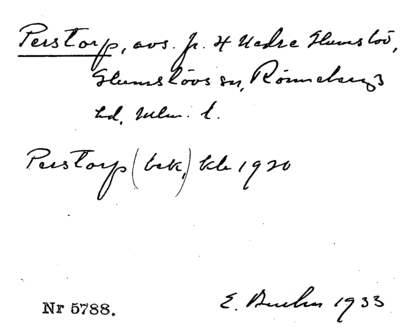 Perstorp, avs. fr. 4 Nedre Glumslöv,
Glumslövs sn, Rönnebergs
hd, Mlm. l.
Perstorp (bek.) kk 1920
Nr 5788. E. 1933